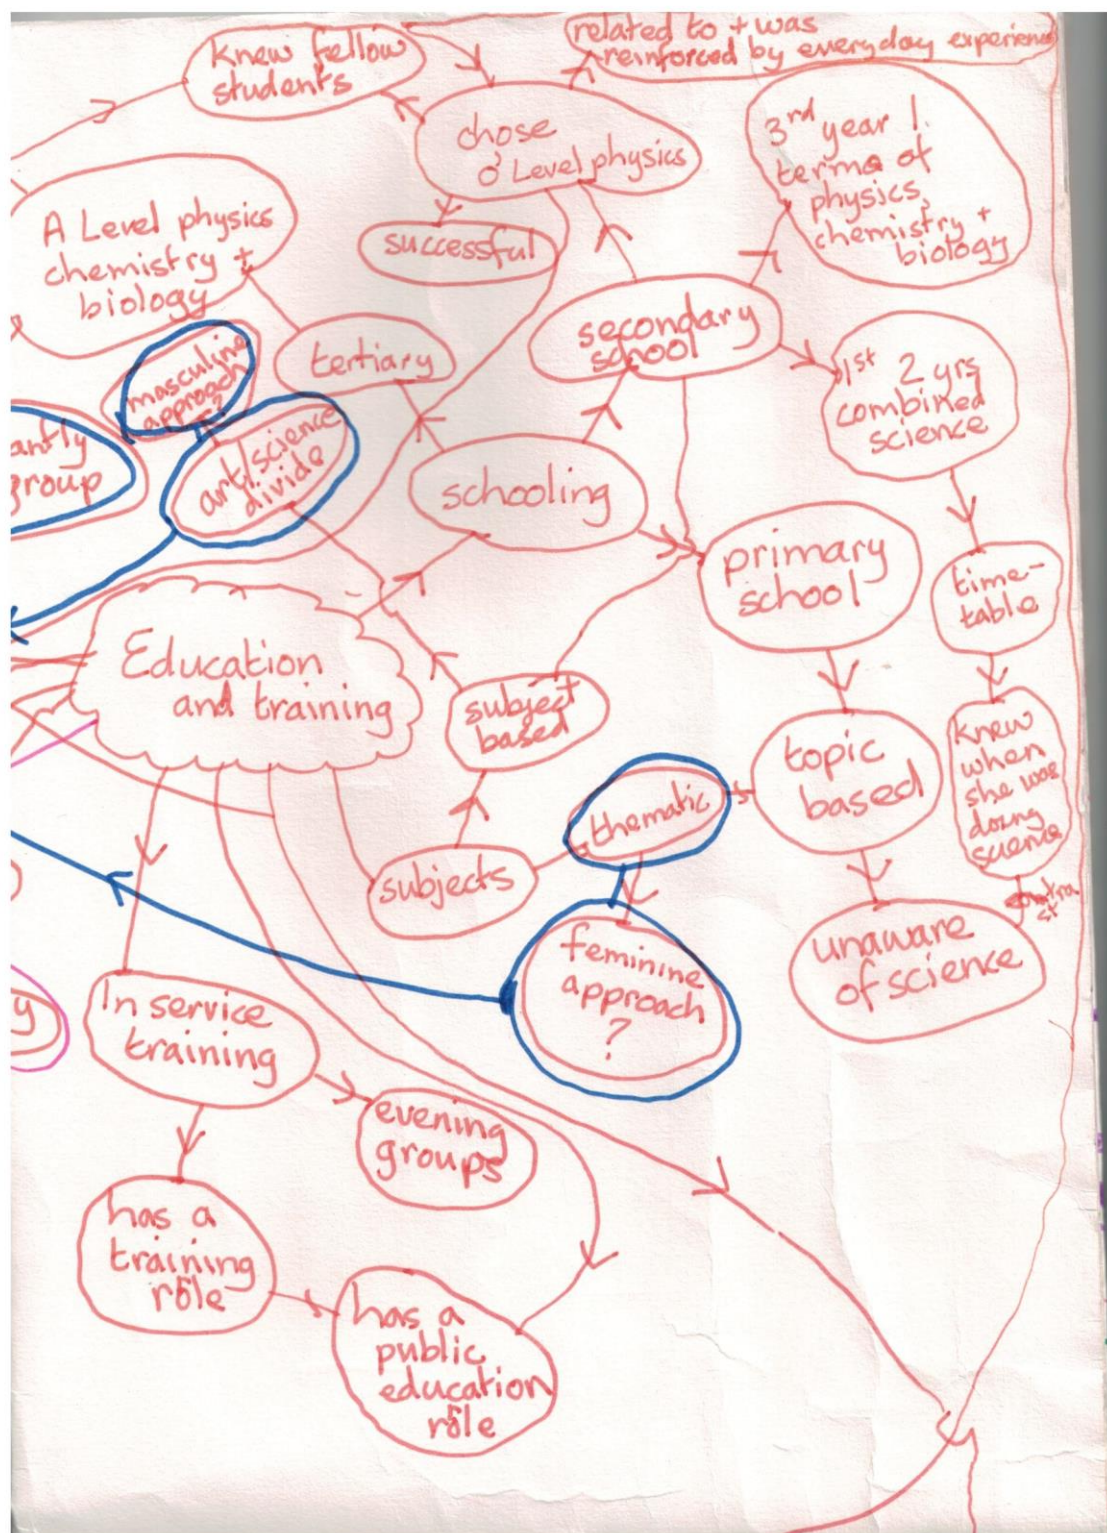 knew fellow
students
related to + was
reinforced by everyday experience
chose
'O' Level physics
3rd year 1.
terma of
physics,
chemistry +
biology
A Level physics
chemistry +
biology
successful
secondary
school
tertiary
masculine
approach
?
1st 2 yrs
combined
science
antly
group
art/science
divide
schooling
primary
school
time-
table
Education
and training
subject
based
topic
based
knew
when
she was
doing
science
thematic
subjects
contra
st
unaware
of science
feminine
approach
?
In service
training
y
evening
groups
has a
training
rôle
has a
public
education
rôle